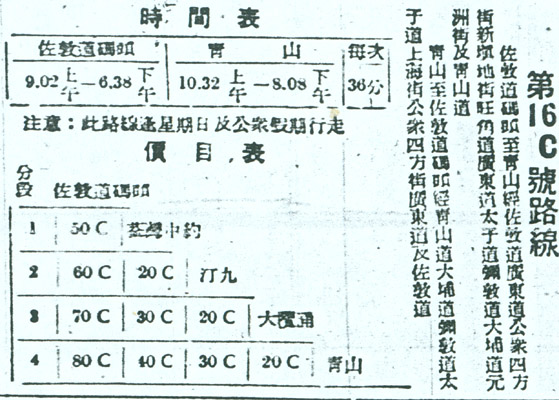 第16C號路線
佐敦道碼頭至靑山經佐敦道廣東道公衆四方
街新塡地街旺角道廣東道太子道彌敦道大埔道元
洲街及靑山道
靑山至佐敦道碼頭經靑山道大埔道彌敦道太
子道上海街公衆四方街廣東道及佐敦道
時間表
佐敦道碼頭 靑山 每次
9.02上午—6.38下午 10.32上午—8.08下午 36分
注意：此路線逢星期日及公衆假期行走
價目表
分段 佐敦道碼頭
1 50 C 荃灣中約
2 60 C 20 C 汀九
3 70 C 30 C 20 C 大欖涌
4 80 C 40 C 30 C 20 C 靑山